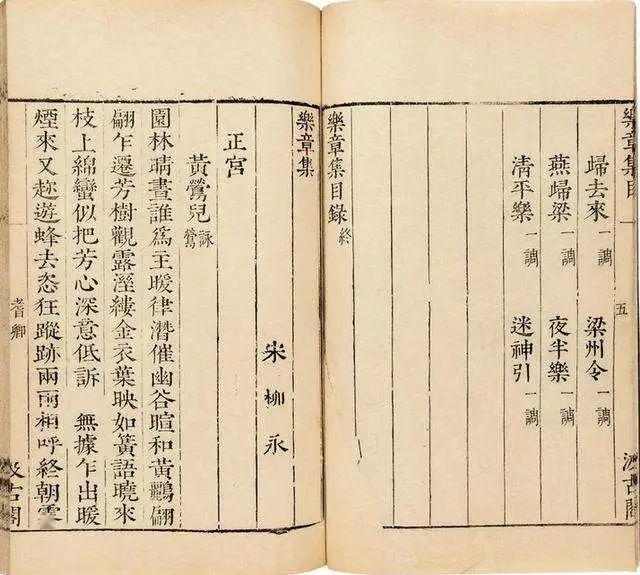 樂章集目 一 五 汲古閣
歸去來一調 梁州令一調
燕歸梁一調 夜半樂一調
清平樂一調 迷神引一調
樂章集目錄終
樂章集
宋 柳永
正宮
黃鶯兒詠鶯
園林晴晝誰爲主暖律潛催幽谷暄和黃鸝翩
翩乍遷芳樹觀露溼縷金衣葉映如簧語曉來
枝上綿蠻似把芳心深意低訴 無據乍出暖
煙來又趂遊蜂去恣狂蹤跡兩兩相呼終朝霧
耆卿 汲古閣